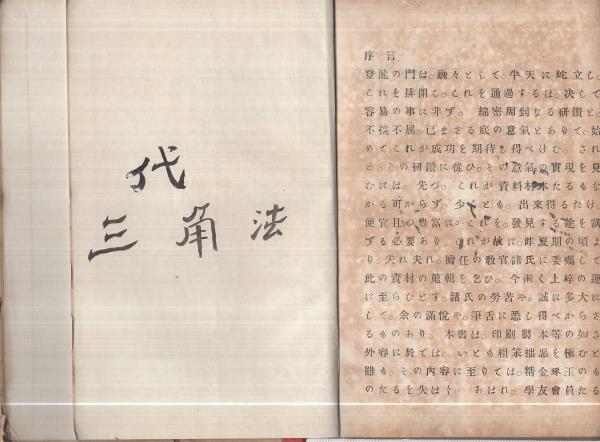 代
三角法
序言
登龍の門は。巍々として。半天に屹立し。
これを排開し。これを通過するは。决して
容易の事に非ず。綿密周到なる研鑽と。
不撓不屈。已まざる底の意氣とありて。始
めてこれが成功を期待し得べけむ。され
ど。この研鑽に從ひ。その意氣の實現を見
むには。先づ。これが資料材木たるもな
かる可からず。少くとも。出來得るだけ。
便宜且つ豊富に。これを。發見する途を講
ずる必要あり。これが故に。昨夏期の頃よ
り。夫れ夫れ。擔任の教官諸氏に委囑して
此の資材の蒐輯を乞ひ。今漸く上梓の運
に至らむとす。諸氏の勞苦や。誠に多大に
して。余の滿悅や。筆舌に悉し得べからざ
るものあり。本書は。印刷製本等の如き
外容に於ては。いとも粗笨拙惡を極むと
雖も。その内容に至りては。精金琢玉のも
のたるを失はず。あはれ。學友會員たる